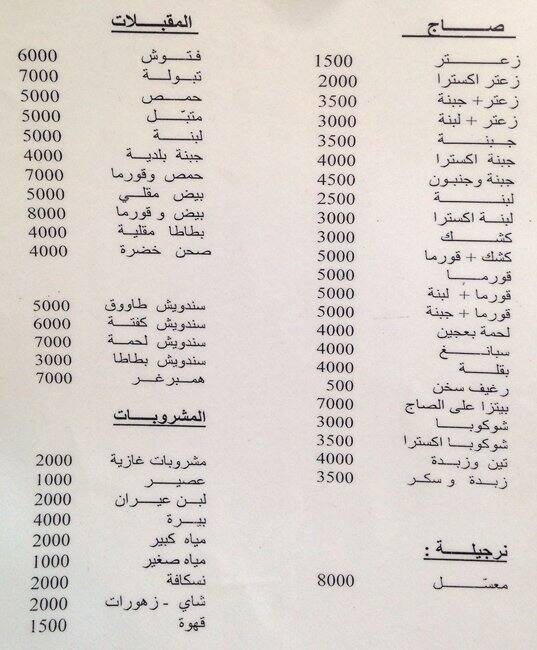 صاج
زعتر 1500
زعتر اكسترا 2000
زعتر + جبنة 3500
زعتر + لبنة 3000
جبنة 3500
جبنة اكسترا 4000
جبنة وجنبون 4500
لبنة 2500
لبنة اكسترا 3000
كشك 3000
كشك + قورما 5000
قورما 5000
قورما + لبنة 5000
قورما + جبنة 5000
لحمة بعجين 4000
سبانغ 4000
بقلة 4000
رغيف سخن 500
بيتزا على الصاج 7000
شوكوبا 3000
شوكوبا اكسترا 3500
تين وزبدة 4000
زبدة و سكر 3500
نرجيلة :
معسّل 8000
المقبلات
فتوش 6000
تبولة 7000
حمص 5000
متبّل 5000
لبنة 5000
جبنة بلدية 4000
حمص وقورما 7000
بيض مقلي 5000
بيض و قورما 8000
بطاطا مقلية 4000
صحن خضرة 4000
سندويش طاووق 5000
سندويش كفتة 6000
سندويش لحمة 7000
سندويش بطاطا 3000
همبرغر 7000
المشروبات
مشروبات غازية 2000
عصير 1000
لبن عيران 2000
بيرة 4000
مياه كبير 2000
مياه صغير 1000
نسكافة 2000
شاي - زهورات 2000
قهوة 1500